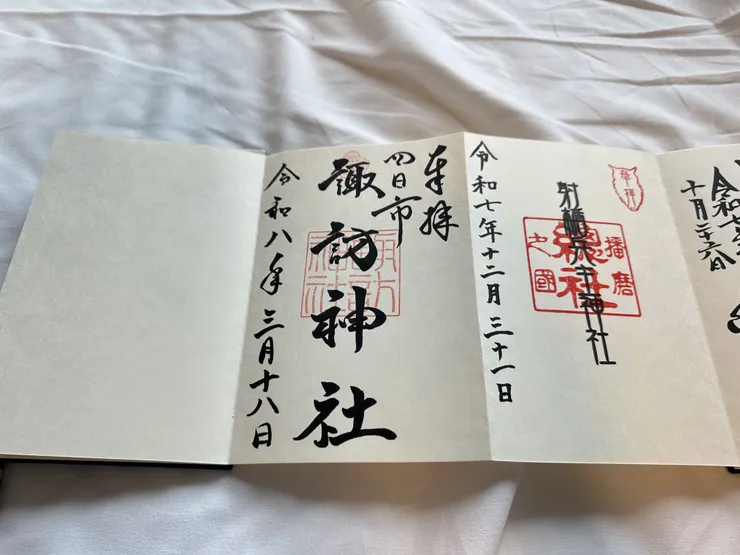 令和七
十月二十六日
奉拝
射楯兵主神社
播磨
總社
之國
令和七年十二月三十一日
奉拝
四日市
諏訪神社
令和八年三月十八日